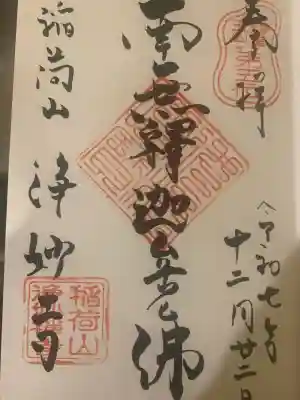 奉拝
令和七年
十二月廿二日
南無釋迦牟尼佛
稲荷山
浄妙寺
稲荷山